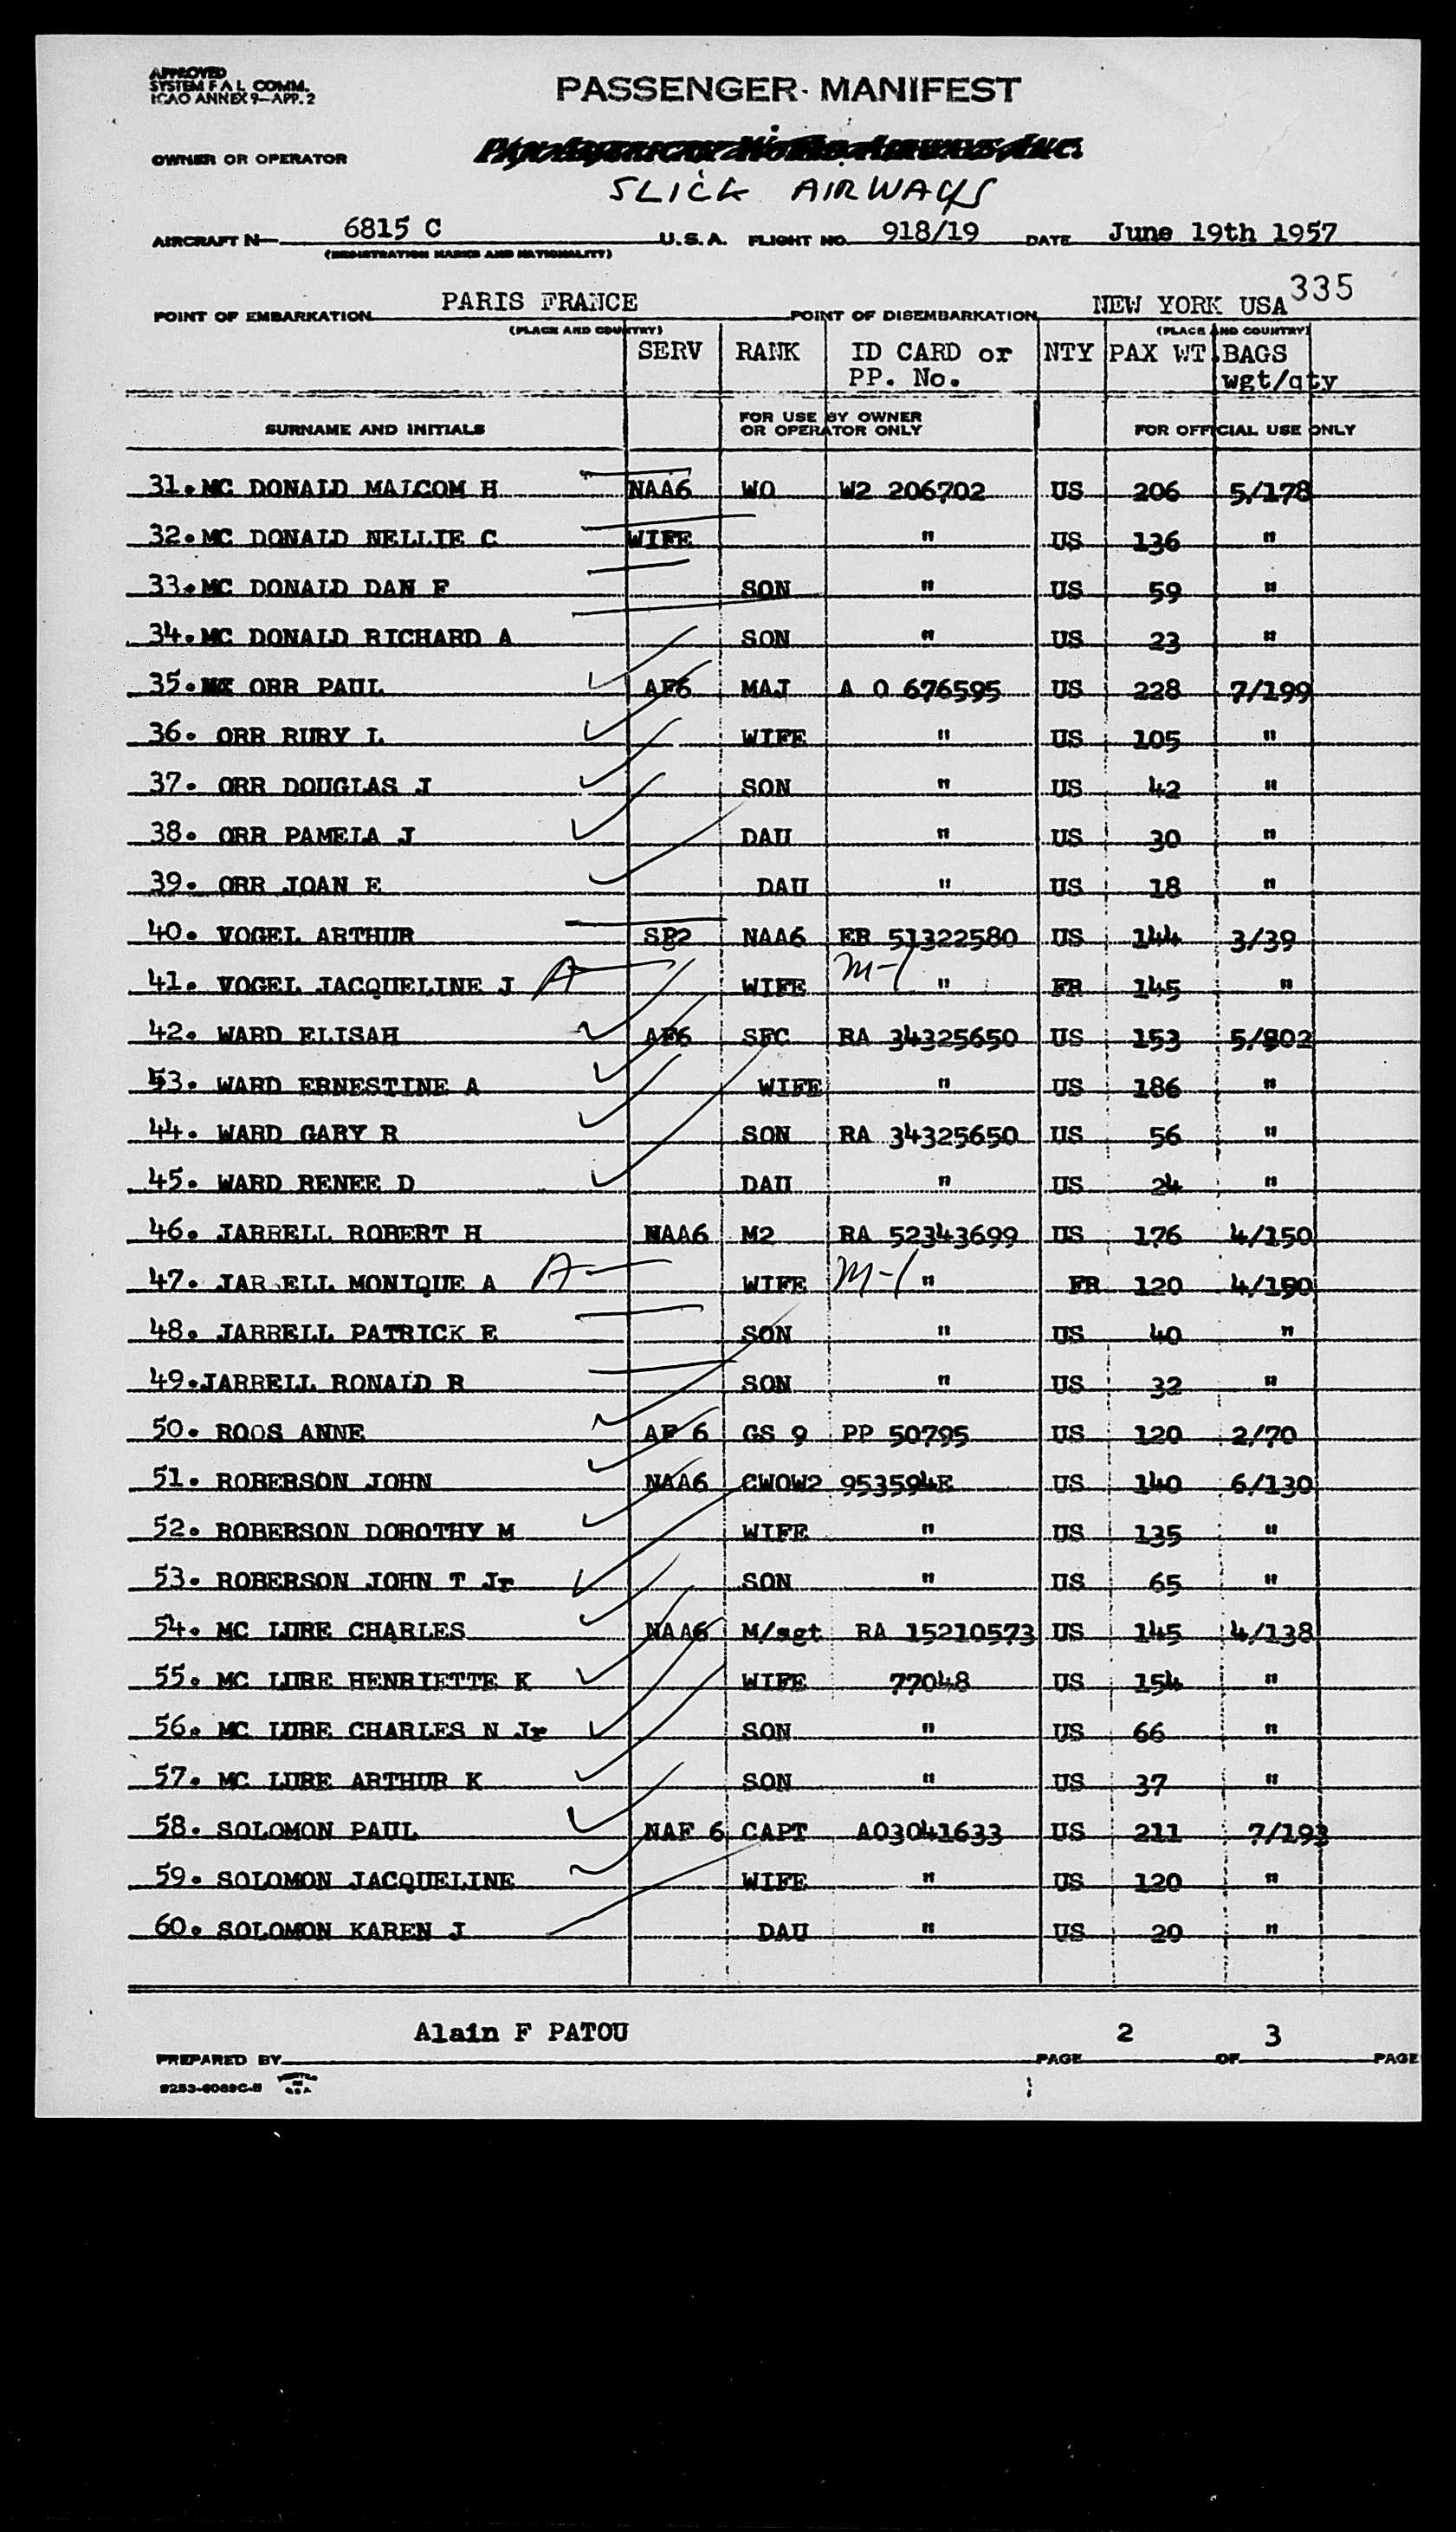 APPROVED
SYSTEM F A L COMM.
ICAO ANNEX 9-APP. 2
PASSENGER MANIFEST
OWNER OR OPERATOR PAN AMERICAN WORLD AIRWAYS, INC.
SLICK AIRWAYS
AIRCRAFT N- 6815 C U.S.A. FLIGHT NO. 918/19 DATE June 19th 1957
(REGISTRATION MARKS AND NATIONALITY)
335
POINT OF EMBARKATION PARIS FRANCE POINT OF DISEMBARKATION NEW YORK USA
(PLACE AND COUNTRY) (PLACE AND COUNTRY)
SERV RANK ID CARD or NTY PAX WT BAGS
PP. No. wgt/qty
SURNAME AND INITIALS FOR USE BY OWNER OR OPERATOR ONLY FOR OFFICIAL USE ONLY
31. MC DONALD MALCOM H NAA6 WO W2 206702 US 206 5/178
32. MC DONALD NELLIE C WIFE " US 136 "
33. MC DONALD DAN F SON " US 59 "
34. MC DONALD RICHARD A SON " US 23 "
35. ORR PAUL AF6 MAJ A O 676595 US 228 7/199
36. ORR RURY L WIFE " US 105 "
37. ORR DOUGLAS J SON " US 42 "
38. ORR PAMELA J DAU " US 30 "
39. ORR JOAN E DAU " US 18 "
40. VOGEL ARTHUR SP2 NAA6 ER 51322580 US 144 3/39
41. VOGEL JACQUELINE J A WIFE M-1 " FR 145 "
42. WARD ELISAH AF6 SFC RA 34325650 US 153 5/202
43. WARD ERNESTINE A WIFE " US 186 "
44. WARD GARY R SON RA 34325650 US 56 "
45. WARD RENEE D DAU " US 24 "
46. JARRELL ROBERT H NAA6 M2 RA 52343699 US 176 4/150
47. JAR ELL MONIQUE A A WIFE M-1 " FR 120 4/150
48. JARRELL PATRICK E SON " US 40 "
49. JARRELL RONALD R SON " US 32 "
50. ROOS ANNE AF 6 GS 9 PP 50795 US 120 2/70
51. ROBERSON JOHN NAA6 CWOW2 953594E US 140 6/130
52. ROBERSON DOROTHY M WIFE " US 135 "
53. ROBERSON JOHN T Jr SON " US 65 "
54. MC LURE CHARLES NAA6 M/sgt RA 15210573 US 145 4/138
55. MC LURE HENRIETTE K WIFE 77048 US 154 "
56. MC LURE CHARLES N Jr SON " US 66 "
57. MC LURE ARTHUR K SON " US 37 "
58. SOLOMON PAUL NAF 6 CAPT AO3041633 US 211 7/193
59. SOLOMON JACQUELINE WIFE " US 120 "
60. SOLOMON KAREN J DAU " US 20 "
PREPARED BY Alain F PATOU PAGE 2 OF 3 PAGE
PRINTED IN U.S.A.